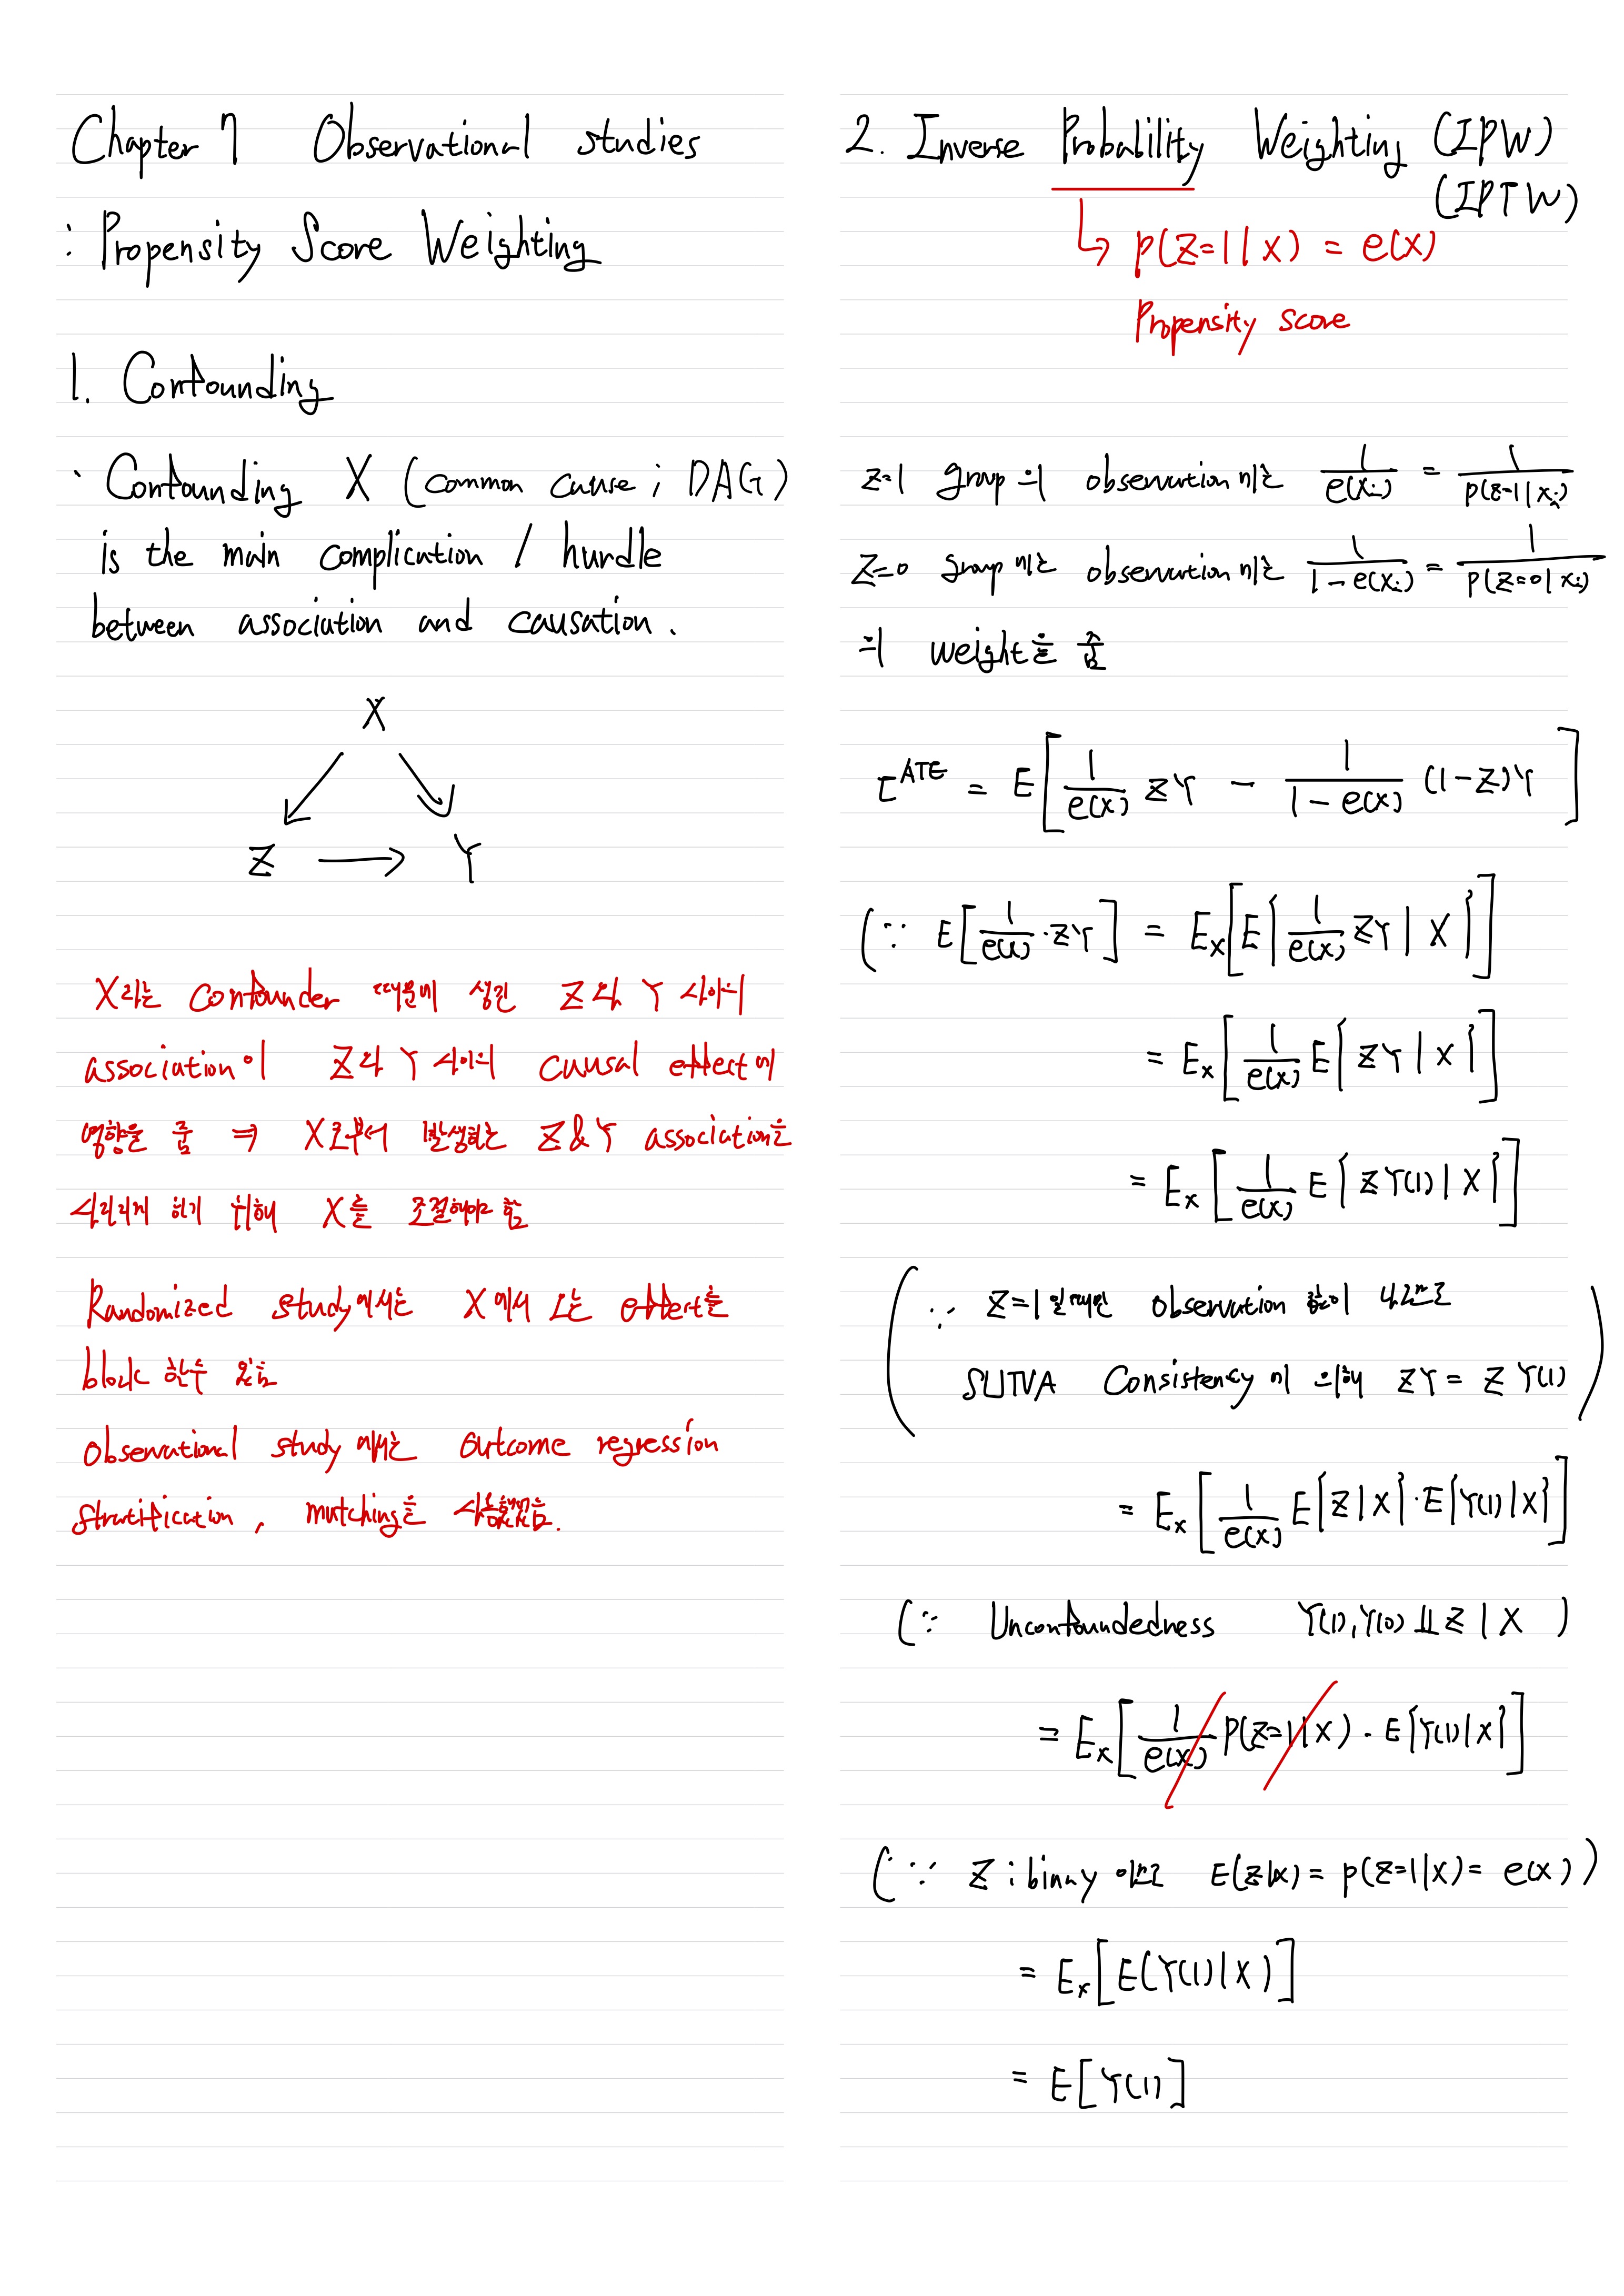 Chapter 7 Observational studies
: Propensity Score Weighting
1. Confounding
· Confounding X (common cause ; DAG)
is the main complication / hurdle
between association and causation.
X
Z → Y
X라는 Confounder 때문에 생긴 Z와 Y 사이의
association이 Z와 Y 사이의 causal effect에
영향을 줌 ⇒ X로부터 발생하는 Z&Y association을
사라지게 하기 위해 X를 조절해야 함
Randomized study에서는 X에서 오는 effect를
block 할수 있음
observational study 에서는 outcome regression
stratification, matching을 사용했었음.
2. Inverse Probability Weighting (IPW)
(IPTW)
↳ p(Z=1|X) = e(X)
Propensity score
Z=1 group의 observation에는 1/e(Xi) = 1/p(Z=1|Xi)
Z=0 group에는 observation에는 1/(1-e(Xi)) = 1/p(Z=0|Xi)
의 weight를 줌
τ^ATE = E[ 1/e(X) ZY - 1/(1-e(X)) (1-Z)Y ]
(∵ E[ 1/e(X) · ZY ] = E_X[ E{ 1/e(X) ZY | X } ]
= E_X[ 1/e(X) E{ ZY | X } ]
= E_X[ 1/e(X) E{ ZY(1) | X } ]
( ∵ Z=1 일때만 observation 값이 나오므로
SUTVA Consistency 에 의해 ZY = ZY(1) )
= E_X[ 1/e(X) E{Z|X} · E{Y(1)|X} ]
(∵ Unconfoundedness Y(1), Y(0) ⫫ Z | X )
= E_X[ 1/e(X) P(Z=1|X) · E{Y(1)|X} ]
(∵ Z : binary 이므로 E(Z|X) = p(Z=1|X) = e(X) )
= E_X[ E(Y(1)|X) ]
= E[Y(1)]